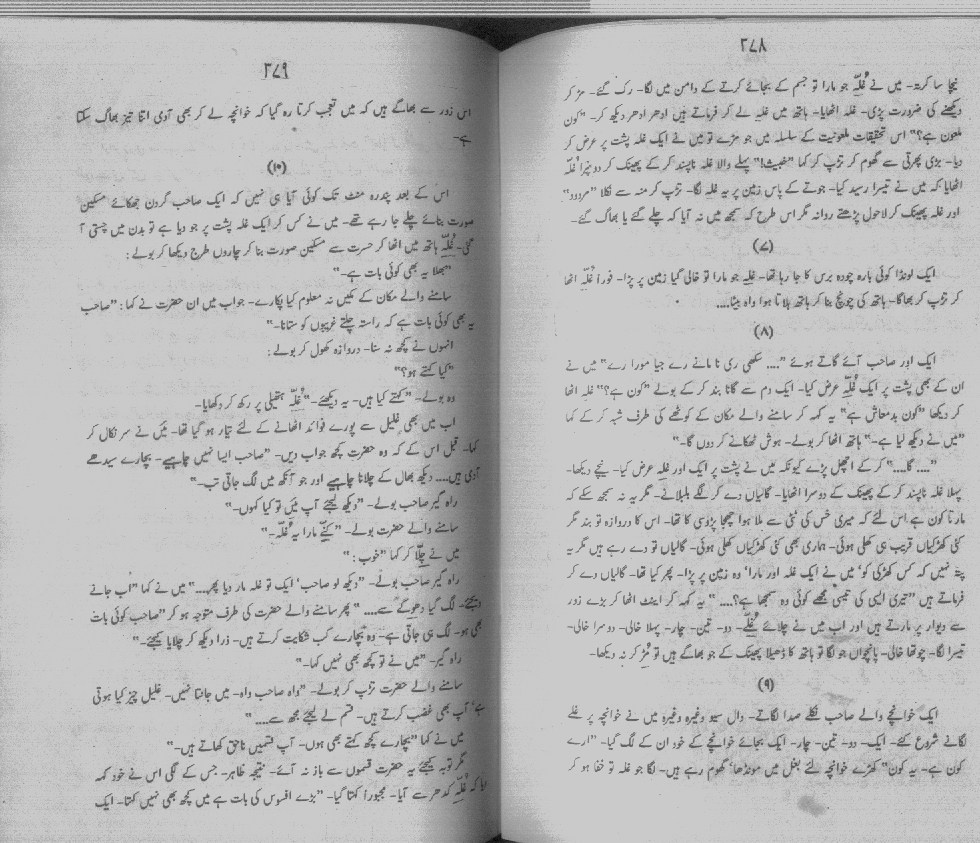 ۳۷۸
نیچا سا کرتہ۔ میں نے غُلّہ جو مارا تو جسم کے بجائے کرتے کے دامن میں لگا۔ رک گئے۔ مڑ کر
دیکھنے کی ضرورت پڑی۔ غلہ اٹھایا۔ ہاتھ میں غلیہ لے کر فرماتے ہیں ادھر ادھر دیکھ کر۔ "کون
ملعون ہے؟" اس تحقیقات ملعونیت کے سلسلہ میں جو مڑے تو میں نے ایک غلہ پشت پر عرض کر
دیا۔ بڑی پھرتی سے گھوم کر تڑپ کر کہا "خبیث!" پہلے والا غلہ ناپسند کر کے پھینک کر دوسرا غُلّہ
اٹھایا کہ میں نے تیسرا رسید کیا۔ جوتے کے پاس زمین پر یہ غلہ لگا۔ تڑپ کر منہ سے نکلا "مردود"
اور غلہ پھینک کر لاحول پڑھتے روانہ مگر اس طرح کہ سمجھ میں نہ آیا کہ چلے گئے یا بھاگ گئے۔
(۷)
ایک لونڈا کوئی بارہ چودہ برس کا جا رہا تھا۔ غلیہ جو مارا تو خالی گیا زمین پر پڑا۔ فوراً غُلّہ اٹھا
کر تڑپ کر بھاگا۔ ہاتھ کی چونچ بنا کر ہاتھ ہلاتا ہوا واہ بیٹا....
(۸)
ایک اور صاحب آئے گاتے ہوئے ".... سکھی ری نا مانے رے جیا مورا رے" میں نے
ان کے بھی پشت پر ایک غُلّہ عرض کیا۔ ایک دم سے گانا بند کر کے بولے "کون ہے؟" غلہ اٹھا
کر دیکھا "کون بدمعاش ہے" یہ کہہ کر سامنے والے مکان کے کوٹھے کی طرف شبہ کر کے کہا
"میں نے دیکھ لیا ہے۔" ہاتھ اٹھا کر بولے۔ ہوش ٹھکانے کر دوں گا۔"
".... گا...." کر کے اچھل پڑے کیونکہ میں نے پشت پر ایک اور غلہ عرض کیا۔ نیچے دیکھا۔
پہلا غلہ ناپسند کر کے پھینک کے دوسرا اٹھایا۔ گالیاں دے کر لگے بلبلانے۔ مگر یہ نہ سمجھ سکے کہ
مارتا کون ہے اس لئے کہ میری خس کی ٹٹی سے ملا ہوا چھجا پڑوسی کا تھا۔ اس کا دروازہ تو بند مگر
کئی کھڑکیاں قریب ہی کھلی ہوئی۔ ہماری بھی کئی کھڑکیاں کھلی ہوئی۔ گالیاں تو دے رہے ہیں مگر یہ
پتہ نہیں کہ کس کھڑکی کو' میں نے ایک غلہ اور مارا' وہ زمین پر پڑا۔ پھر کیا تھا۔ گالیاں دے کر
فرماتے ہیں "تیری ایسی کی تیسی مجھے کوئی وہ سمجھا ہے؟...." یہ کہہ کر اینٹ اٹھا کر بڑے زور
سے دیوار پر مارتے ہیں اور اب میں نے چلائے غُلّے۔ دو۔ تین۔ چار۔ پہلا خالی۔ دوسرا خالی۔
تیسرا لگا۔ چوتھا خالی۔ پانچواں جو لگا تو ہاتھ کا ڈھیلا پھینک کے جو بھاگے ہیں تو مُڑ کر نہ دیکھا۔
(۹)
ایک خوانچے والے صاحب نکلے صدا لگاتے۔ دال سیو وغیرہ وغیرہ میں نے خوانچہ پر غلے
لگانے شروع کئے۔ ایک۔ دو۔ تین۔ چار۔ ایک بجائے خوانچے کے خود ان کے لگ گیا۔ "ارے
کون ہے۔ یہ کون" کھڑے خوانچہ لئے بغل میں مونڈھا' گھوم رہے ہیں۔ لگا جو غلہ تو خفا ہو کر
۳۷۹
اس زور سے بھاگے ہیں کہ میں تعجب کرتا رہ گیا کہ خوانچہ لے کر بھی آدمی اتنا تیز بھاگ سکتا
ہے۔
(۱۰)
اس کے بعد پندرہ منٹ تک کوئی آیا ہی نہیں کہ ایک صاحب گردن جھکائے مسکین
صورت بنائے چلے جا رہے تھے۔ میں نے کس کر ایک غلہ پشت پر جو دیا ہے تو بدن میں چستی آ
گئی۔ غُلّہ ہاتھ میں اٹھا کر حسرت سے مسکین صورت بنا کر چاروں طرح دیکھا کر بولے :
"بھلا یہ بھی کوئی بات ہے۔"
سامنے والے مکان کے مکیں نہ معلوم کیا پکارے۔ جواب میں ان حضرت نے کہا : "صاحب
یہ بھی کوئی بات ہے کہ راستہ چلتے غریبوں کو ستانا۔"
انہوں نے کچھ نہ سنا۔ دروازہ کھول کر بولے :
"کیا کہتے ہو؟"
وہ بولے۔ "کہتے کیا ہیں۔ یہ دیکھئے۔" غُلّہ ہتھیلی پر رکھ کر دکھایا۔
اب میں بھی غلیل سے پورے فوائد اٹھانے کے لئے تیار ہو گیا تھا۔ میں نے سر نکال کر
کہا۔ قبل اس کے کہ وہ حضرت کچھ جواب دیں۔ "صاحب ایسا نہیں چاہیے۔ بچارے سیدھے
آدمی ہیں.... دیکھ بھال کے چلانا چاہیے اور جو آنکھ میں لگ جاتی تب۔"
راہ گیر صاحب بولے۔ "دیکھ لیجئے آپ میں تو کیا کہوں۔"
سامنے والے حضرت بولے۔ "کنے مارا یہ غُلّہ۔"
میں نے چلّا کر کہا "خوب : "
راہ گیر صاحب بولے۔ "دیکھ لو صاحب' ایک تو غلہ مار دیا پھر...." میں نے کہا "اب جانے
دیجئے۔ لگ گیا دھوکے سے.... " پھر سامنے والے حضرت کی طرف متوجہ ہو کر "صاحب کوئی بات
بھی ہو۔ لگ ہی جاتی ہے۔ وہ بچارے کب شکایت کرتے ہیں۔ ذرا دیکھ کر چلایا کیجئے۔"
راہ گیر۔ "میں نے تو کچھ بھی نہیں کہا۔"
سامنے والے حضرت تڑپ کر بولے۔ "واہ صاحب واہ۔ میں جانتا نہیں۔ غلیل چیز کیا ہوتی
ہے' آپ بھی غضب کرتے ہیں۔ قسم لے لیجئے مجھ سے.... "
میں نے کہا "بچارے کچھ کہتے بھی ہوں۔ آپ قسمیں ناحق کھاتے ہیں۔"
مگر توبہ کیجئے یہ حضرت قسموں سے باز نہ آئے۔ نتیجہ ظاہر۔ جس کے لگی اس نے خود کہہ
دیا کہ غُلّہ کدھر سے آیا۔ مجبوراً کہتا گیا۔ "بڑے افسوس کی بات ہے میں کچھ بھی نہیں کہتا۔ ایک